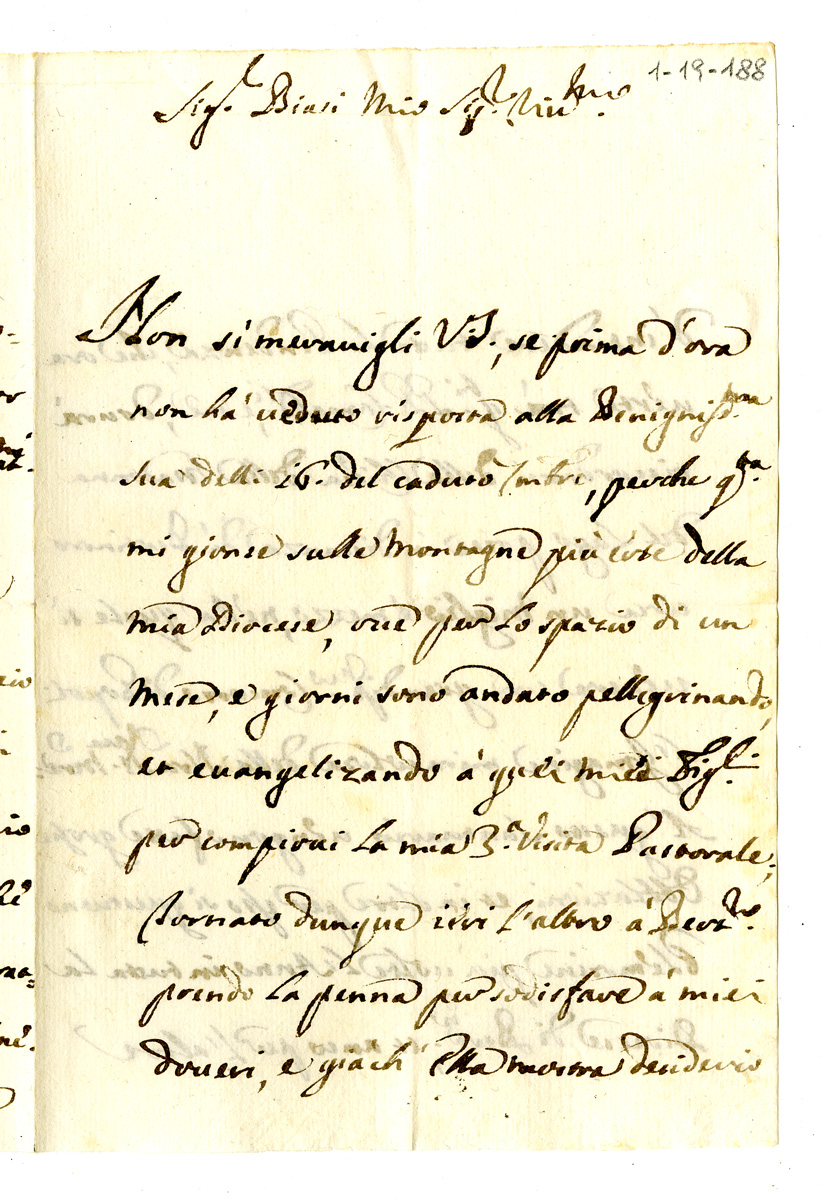 1-19-188
Sig.r Biasi Mio Sig.r Riv.mo
Non si meravigli V.S., se prima d'ora
non hà veduto risposta alla Benigniss.ma
sua delli 16. del caduto 7mbre, perche q.ta
mi gionse sulle Montagne più erte della
mia Diocese, ove per lo spazio di un
Mese, e giorni sono andato pellegrinando,
et evangelizando à quei miei Figl.
per compirvi la mia 3.a Visita Pastorale;
Tornato dunque ieri l'altro à
prendo la penna per sodisfare à miei
doveri, e giàch' Ella mostra desiderio